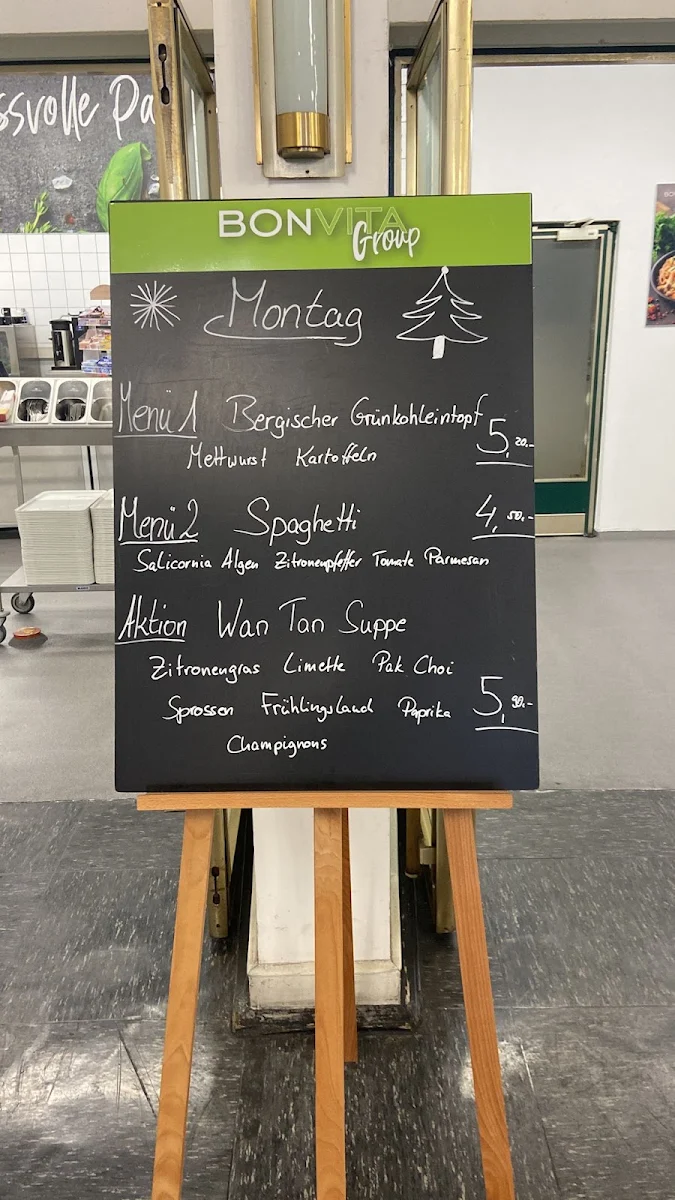 ssvolle Pa
BONVITA
Group
Montag
Menü 1 Bergischer Grünkohleintopf
5,20.-
Mettwurst Kartoffeln
Menü 2 Spaghetti 4,50.-
Salicornia Algen Zitronenpfeffer Tomate Parmesan
Aktion Wan Tan Suppe
Zitronengras Limette Pak Choi
Sprossen Frühlingslauch Paprika 5,90.-
Champignons